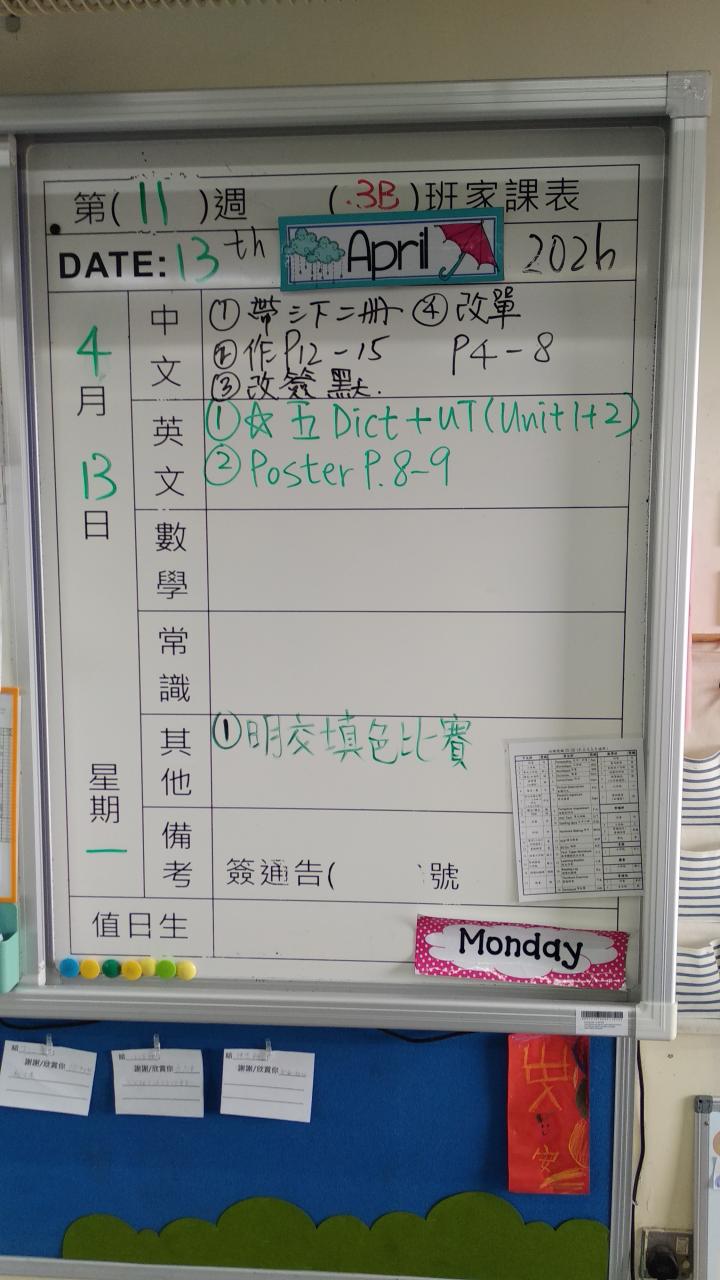 第(11)週 (3B)班家課表
DATE: 13th April 2026
4月13日 星期一
中文
①帶三下二冊 ④改單
②作P12-15 P4-8
③改簽默.
英文
①☆五Dict+UT(Unit1+2)
②Poster P.8-9
數學
常識
其他
①明交填色比賽
備考
簽通告( 號
值日生
Monday
謝謝/欣賞你
謝謝/欣賞你
謝謝/欣賞你